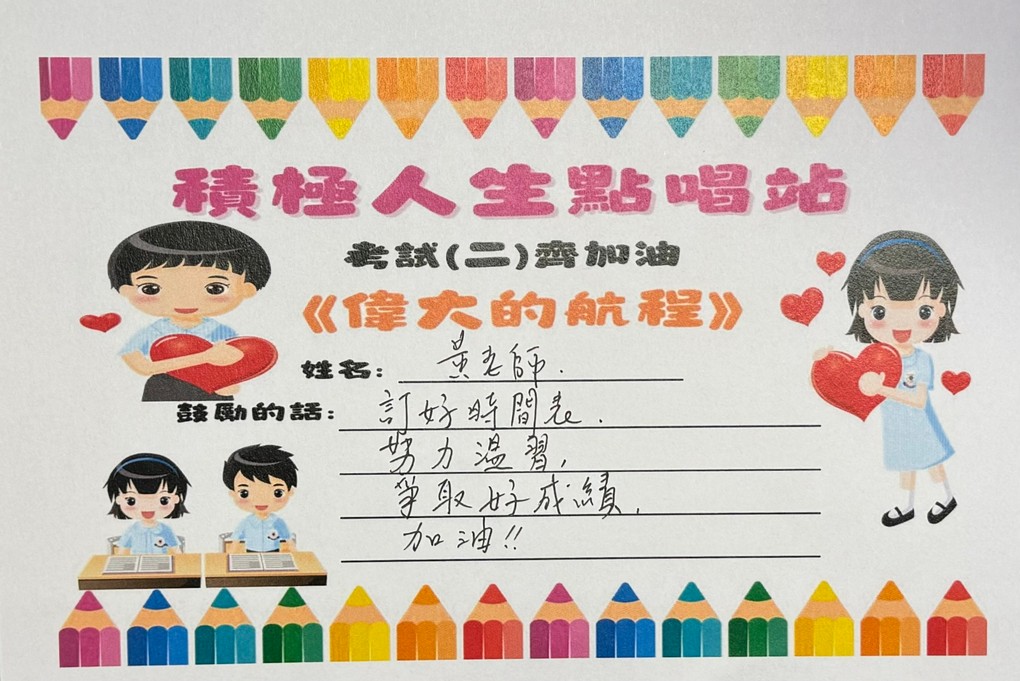 積極人生點唱站
考試(二)齊加油
《偉大的航程》
姓名: 黃老師.
鼓勵的話: 訂好時間表.
努力溫習,
爭取好成績,
加油!!